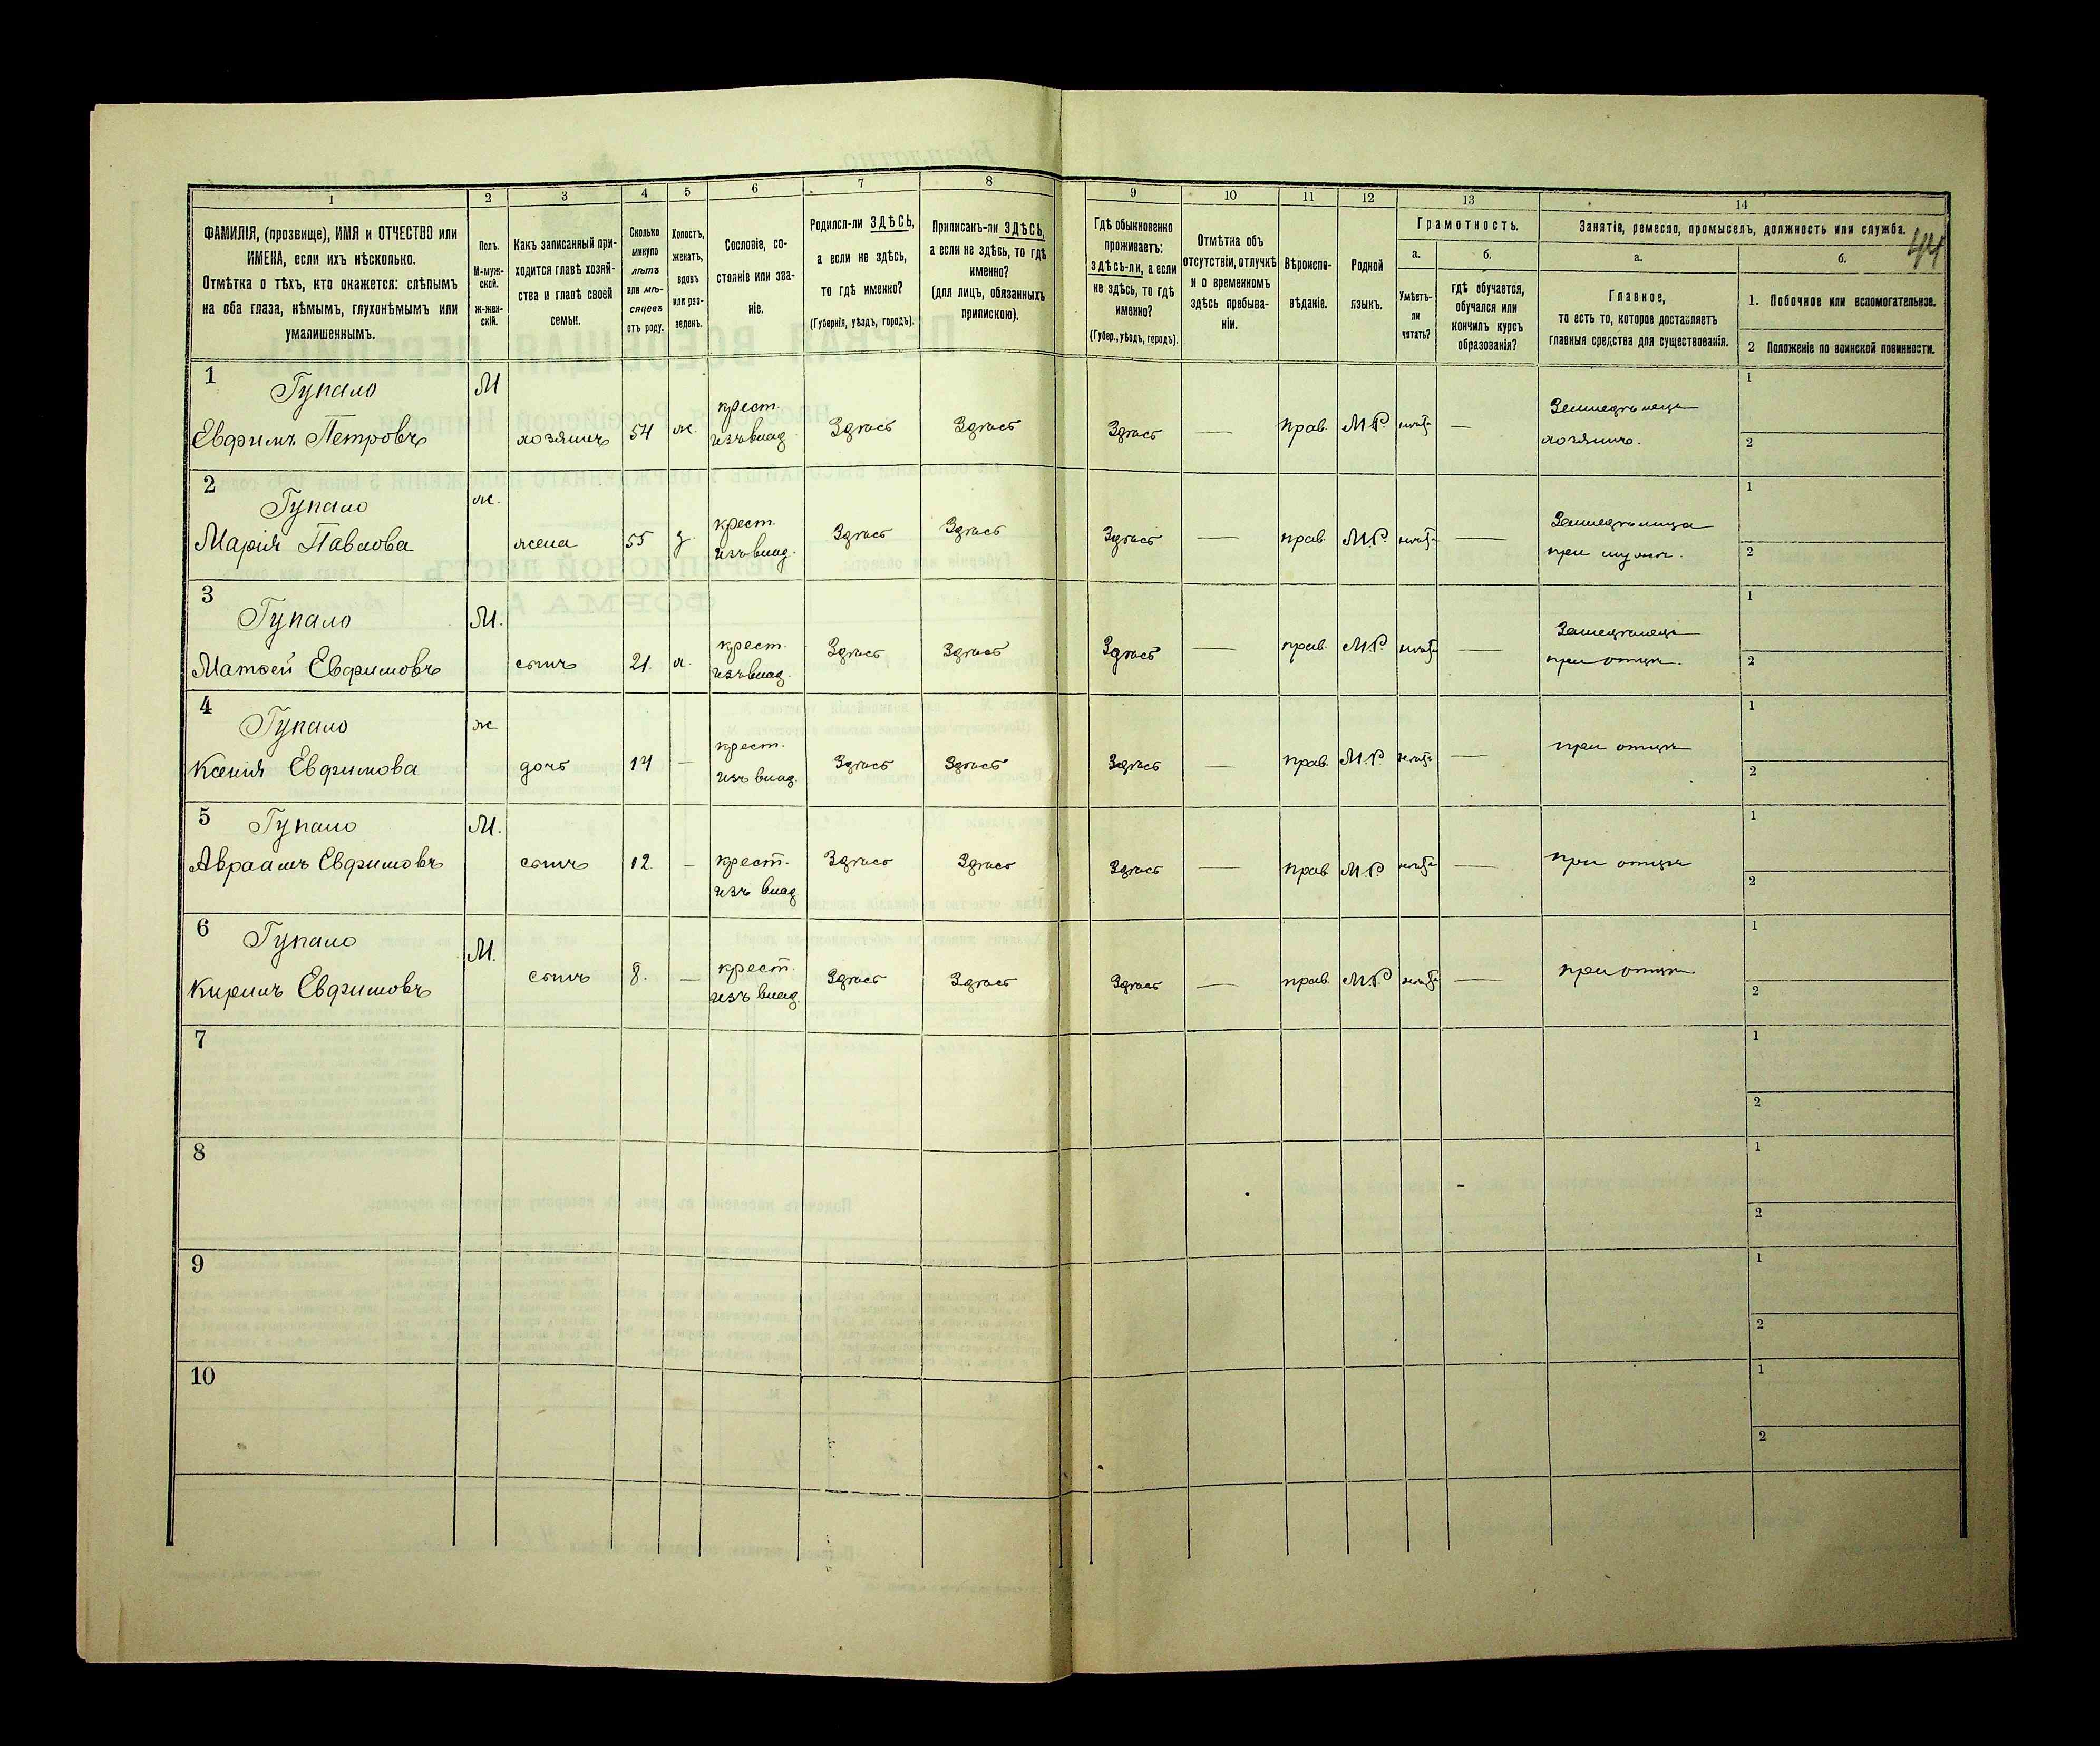 1 2 3 4 5 6 7 8 9 10 11 12 13 14
44
ФАМИЛІЯ, (прозвище), ИМЯ и ОТЧЕСТВО или
ИМЕНА, если ихъ нѣсколько.
Отмѣтка о тѣхъ, кто окажется: слѣпымъ
на оба глаза, нѣмымъ, глухонѣмымъ или
умалишеннымъ.
Полъ.
М-муж-
ской.
ж-жен-
скій.
Какъ записанный при-
ходится главѣ хозяй-
ства и главѣ своей
семьи.
Сколько
минуло
лѣтъ
или мѣ-
сяцевъ
отъ роду.
Холостъ,
женатъ,
вдовъ
или раз-
веденъ.
Сословіе, со-
стояніе или зва-
ніе.
Родился-ли ЗДѢСЬ,
а если не здѣсь,
то гдѣ именно?
(Губернія, уѣздъ, городъ).
Приписанъ-ли ЗДѢСЬ,
а если не здѣсь, то гдѣ
именно?
(для лицъ, обязанныхъ
припискою).
Гдѣ обыкновенно
проживаетъ:
здѣсь-ли, а если
не здѣсь, то гдѣ
именно?
(Губер., уѣздъ, городъ).
Отмѣтка объ
отсутствіи, отлучкѣ
и о временномъ
здѣсь пребыва-
ніи.
Вѣроиспо-
вѣданіе.
Родной
языкъ.
Грамотность.
а.
Умѣетъ-
ли
читать?
б.
гдѣ обучается,
обучался или
кончилъ курсъ
образованія?
Занятіе, ремесло, промыселъ, должность или служба.
а.
Главное,
то есть то, которое доставляетъ
главныя средства для существованія.
б.
1. Побочное или вспомогательное.
2 Положеніе по воинской повинности.
1 Гупало М 1
Евфимъ Петровъ хозяинъ 54 ж. крест. изъ влад. Здѣсь Здѣсь Здѣсь — прав. М.Р. нѣтъ — Земледѣлецъ
хозяинъ. 2
2 Гупало ж. 1
Марія Павлова жена 55 з. крест. изъ влад. Здѣсь Здѣсь Здѣсь — прав. М.Р. нѣтъ — Земледѣлица
при мужѣ. 2
3 Гупало М. 1
Матѳей Евфимовъ сынъ 21. х. крест. изъ влад. Здѣсь Здѣсь Здѣсь — прав. М.Р. нѣтъ — Земледѣлецъ
при отцѣ. 2
4 Гупало ж 1
Ксенія Евфимова дочь 14 — крест. изъ влад. Здѣсь Здѣсь Здѣсь — прав. М.Р. нѣтъ — при отцѣ 2
5 Гупало М. 1
Авраамъ Евфимовъ сынъ 12 — крест. изъ влад Здѣсь Здѣсь Здѣсь — прав М.Р. нѣтъ — при отцѣ 2
6 Гупало М. 1
Кирилъ Евфимовъ сынъ 8. — крест. изъ влад. Здѣсь Здѣсь Здѣсь — прав. М.Р. нѣтъ — при отцѣ 2
7 1
2
8 1
2
9 1
2
10 1
2